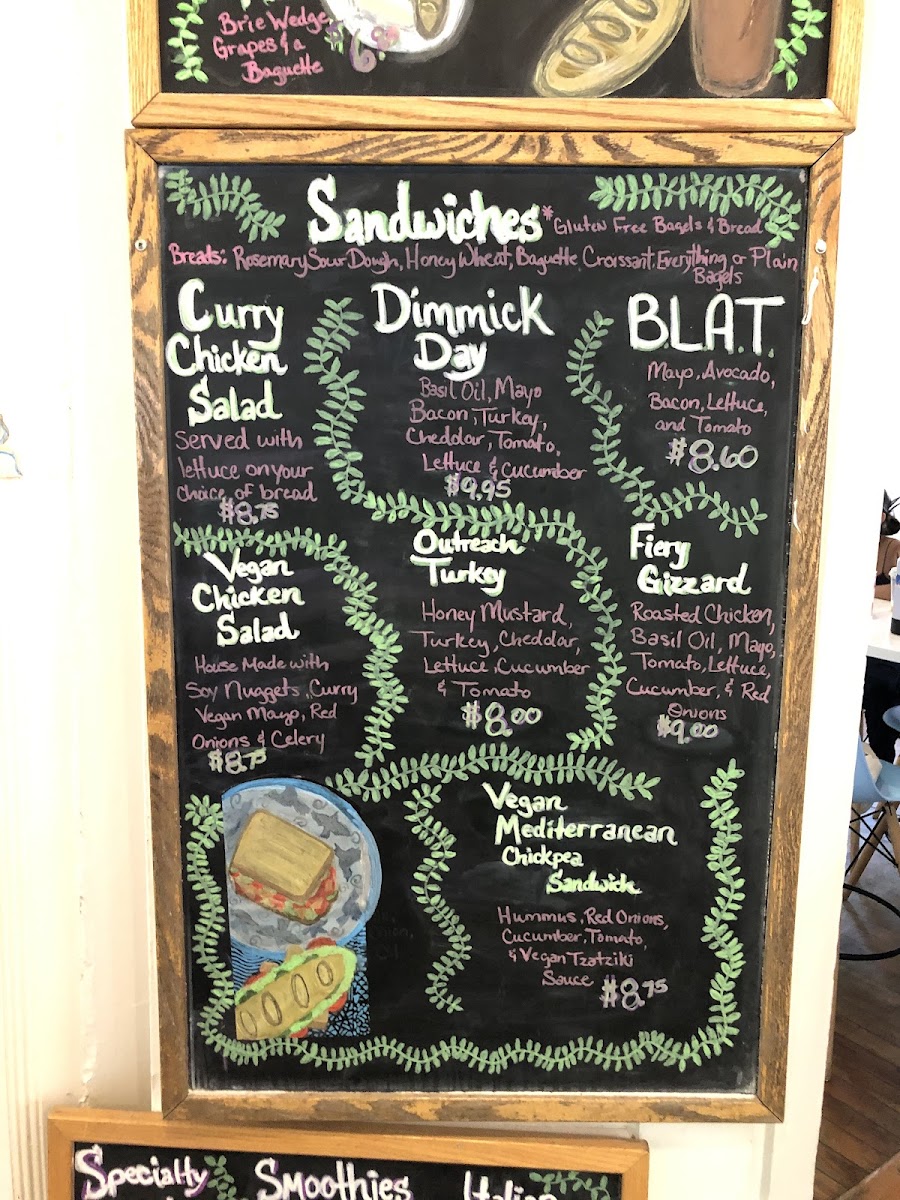 Brie Wedge,
Grapes & a
Baguette
Sandwiches
*Gluten Free Bagels & Bread
Breads: Rosemary Sour Dough, Honey Wheat, Baguette Croissant, Everything or Plain
Bagels
Curry
Chicken
Salad
Served with
lettuce on your
choice of bread
$8.75
Dimmick
Day
Basil Oil, Mayo
Bacon, Turkey,
Cheddar, Tomato,
Lettuce & Cucumber
$9.95
B.L.A.T.
Mayo, Avocado,
Bacon, Lettuce,
and Tomato
$8.60
Vegan
Chicken
Salad
House Made with
Soy Nuggets, Curry
Vegan Mayo, Red
Onions & Celery
$8.75
Outreach
Turkey
Honey Mustard,
Turkey, Cheddar,
Lettuce, Cucumber
& Tomato
$8.00
Fiery
Gizzard
Roasted Chicken,
Basil Oil, Mayo,
Tomato, Lettuce,
Cucumber, & Red
Onions
$9.00
Vegan
Mediterranean
Chickpea
Sandwich
Hummus, Red Onions,
Cucumber, Tomato,
& Vegan Tzatziki
Sauce
$8.75
Specialty
Smoothies